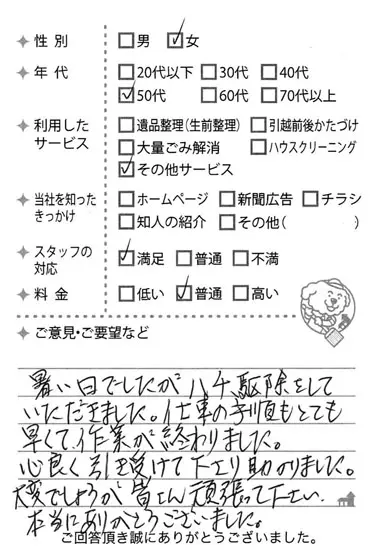 性別 □男 ☑女
年代 □20代以下 □30代 □40代
☑50代 □60代 □70代以上
利用した
サービス
□遺品整理(生前整理) □引越前後かたづけ
□大量ごみ解消 □ハウスクリーニング
☑その他サービス
当社を知った
きっかけ
□ホームページ □新聞広告 □チラシ
□知人の紹介 □その他( )
スタッフの
対応
☑満足 □普通 □不満
料金 □低い ☑普通 □高い
ご意見・ご要望など
暑い日でしたがハチ駆除をして
いただきました。仕事の手順もとても
早くて作業が終わりました。
心良く引き受けて下さり助かりました。
大変でしょうが皆さん頑張って下さい
本当にありがとうございました。
ご回答頂き誠にありがとうございました。